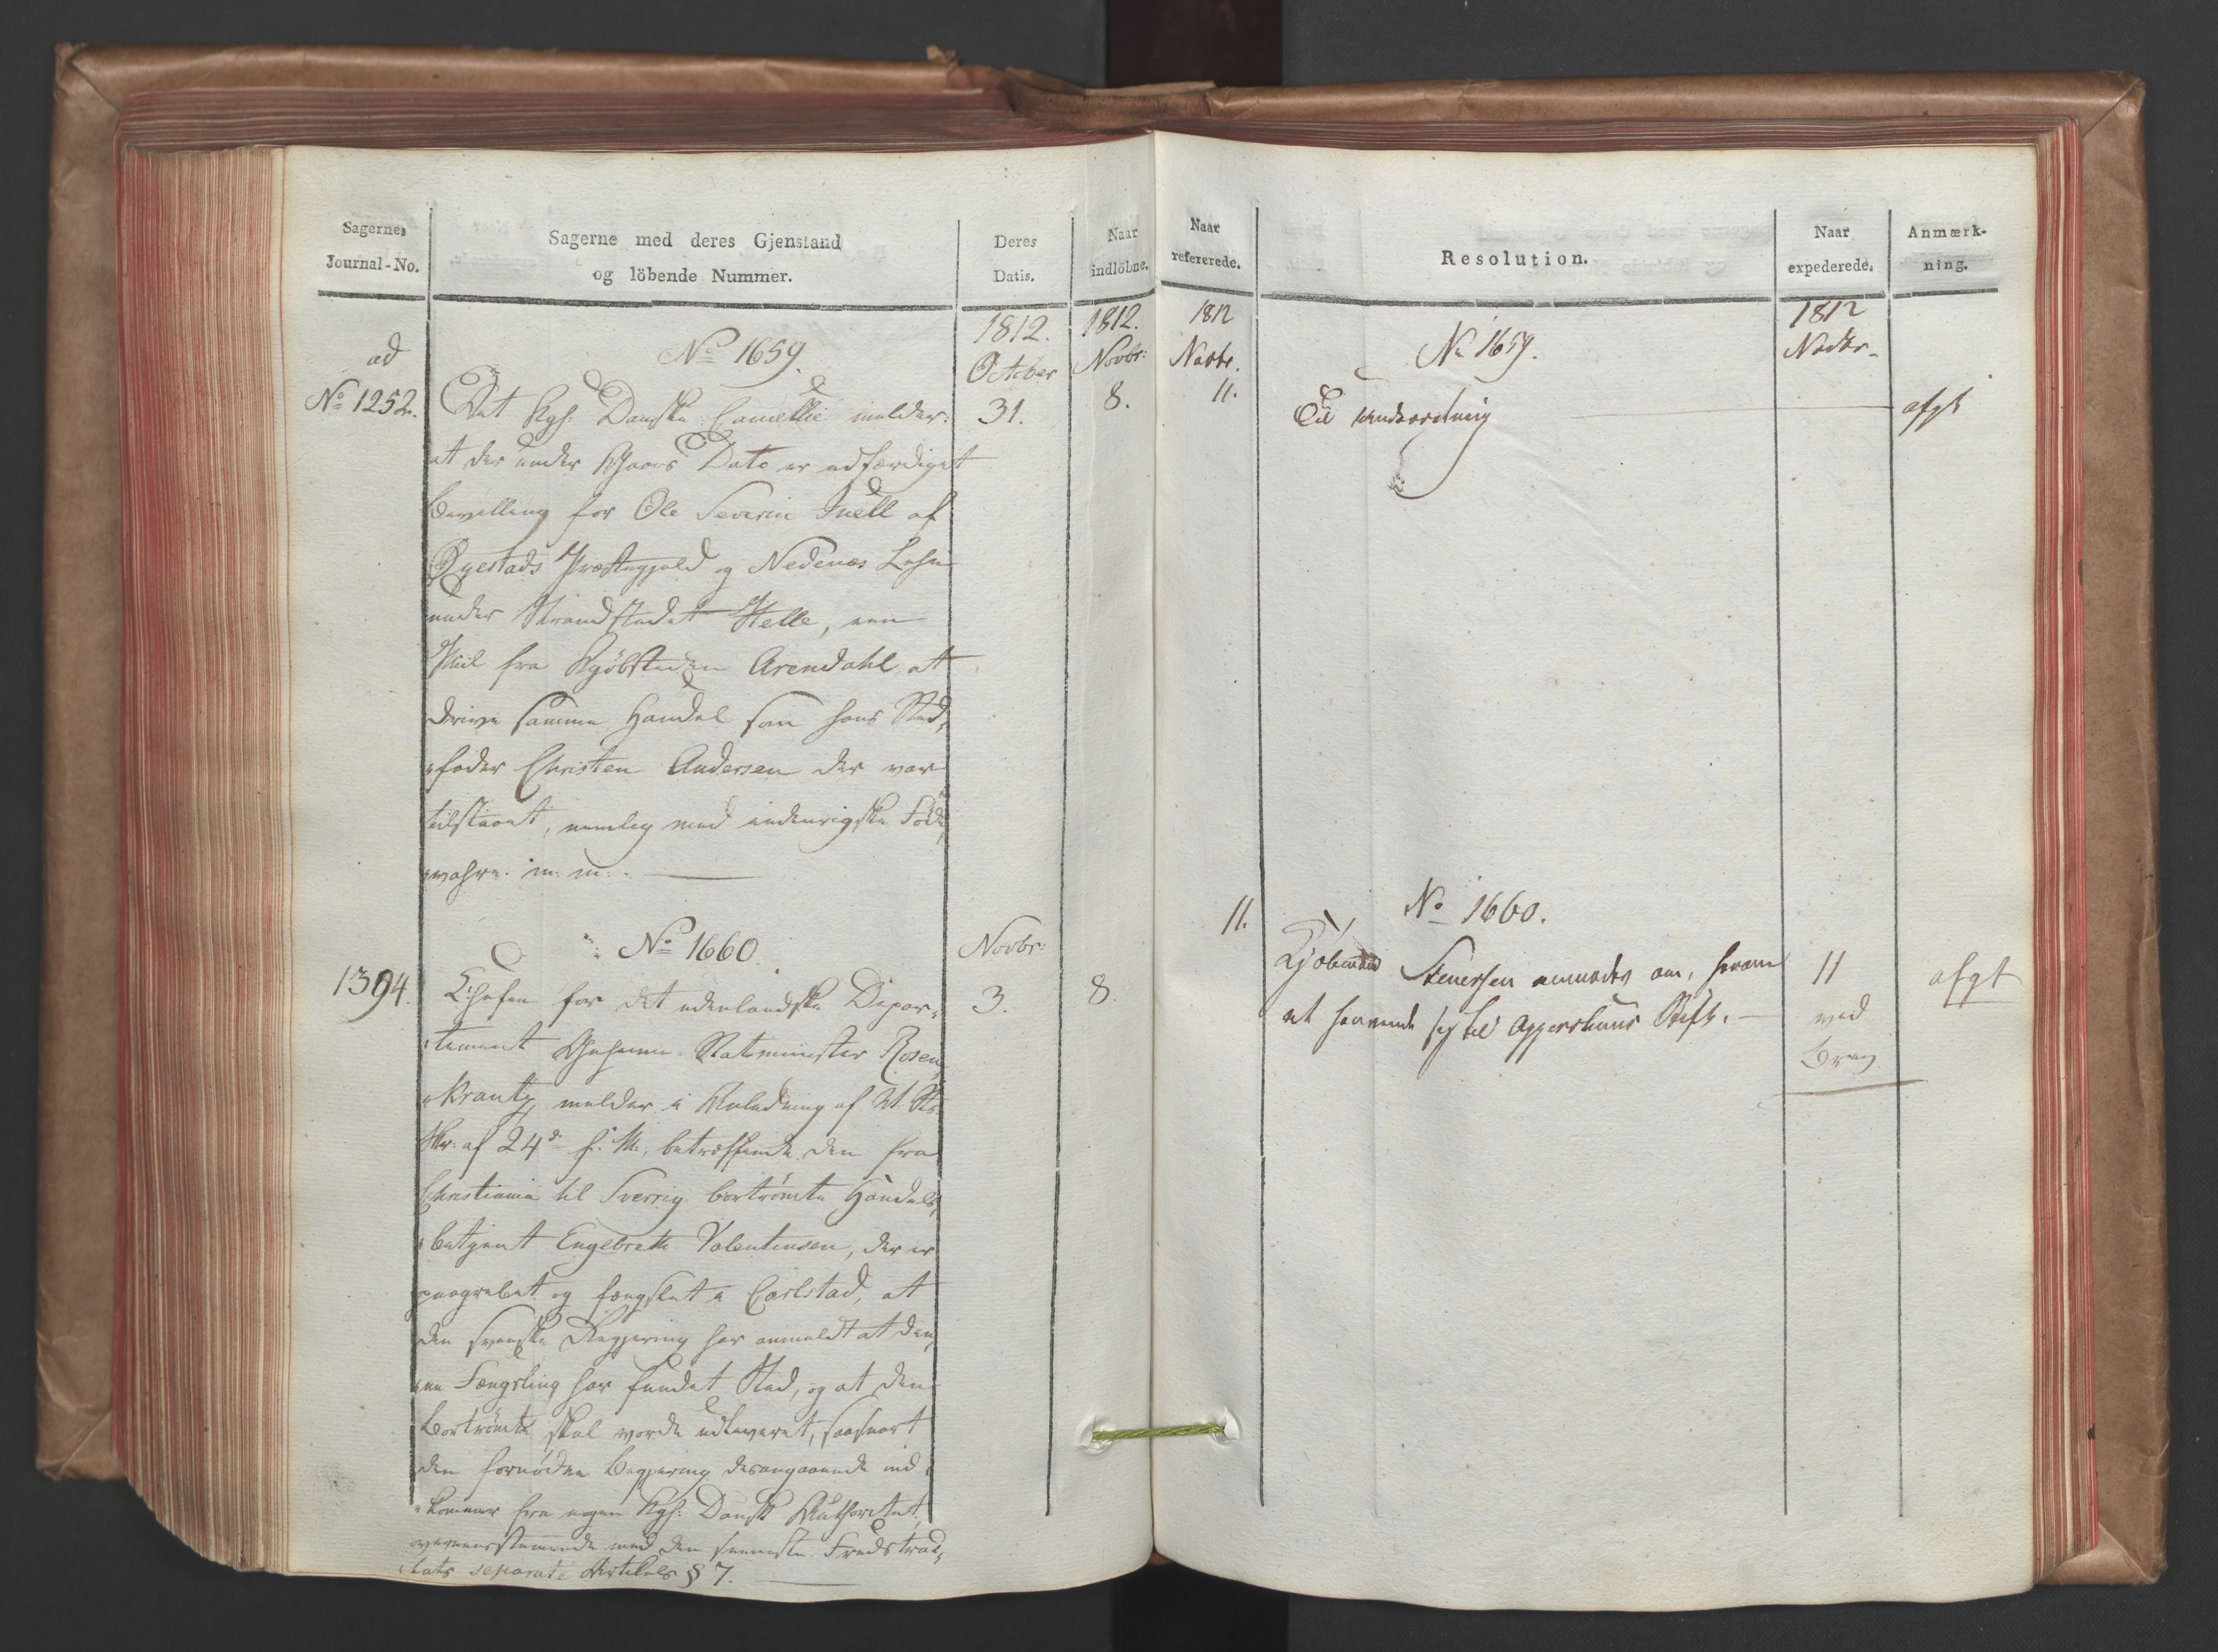 Sagernes
Journal-No.
Sagerne med deres Gjenstand
og löbende Nummer.
Deres
Datis.
Naar
indlöbne.
ad
No 1252.
No 1659.
1812.
October
31.
1812.
Novbr:
8.
Det Kgl. Danske Cancellie melder:
at der under Gaars Dato er udfærdiget
Bevilling for Ole Severin Juell af
Øyestads Præstegjeld og Nedenæs Lehn
under Strandstedet Helle, een
Miil fra Kjöbstæden Arendahl, at
drive samme Handel som hans Sted,
"fader Christen Andersen der var
tilstaaet, nemlig med indenrigske Föde,
"vahre. m: m: .
1394.
No 1660.
Novbr:
3.
8.
Chefen for det udenlandske Depar,
"tement Geheime-Statsminister Rosen,
"krantz, melder i Anledning af
Skr: af 24de f: M:, betræffende den fra
Christiania til Sverrig bortrömte Handels,
"betjent Engebreth Valentinsen, der er
paagrebet og fængslet i Carlstad, at
den svenske Regjering har anmeldt at den,
"ne Fængsling har fundet Sted, og at den
Bortrömte skal vorde udleveret, saasnart
den fornödne Begjering desangaaende ind,
"kommer fra nogen Kgl: Dansk Authoritet,
overeensstemmende med den seeneste Fredstrac,
"tats separate Artikels § 7.
Naar
refererede.
Resolution.
Naar
expederede.
Anmærk-
ning.
1812
Novbr.
11.
No 1659.
1812
Novbr.
Til
afgt
11.
No 1660.
Kjöbmand Steuersen anmodes om,
at henvende sig til Aggershuus Stift.
11
ved
Brev
afgt